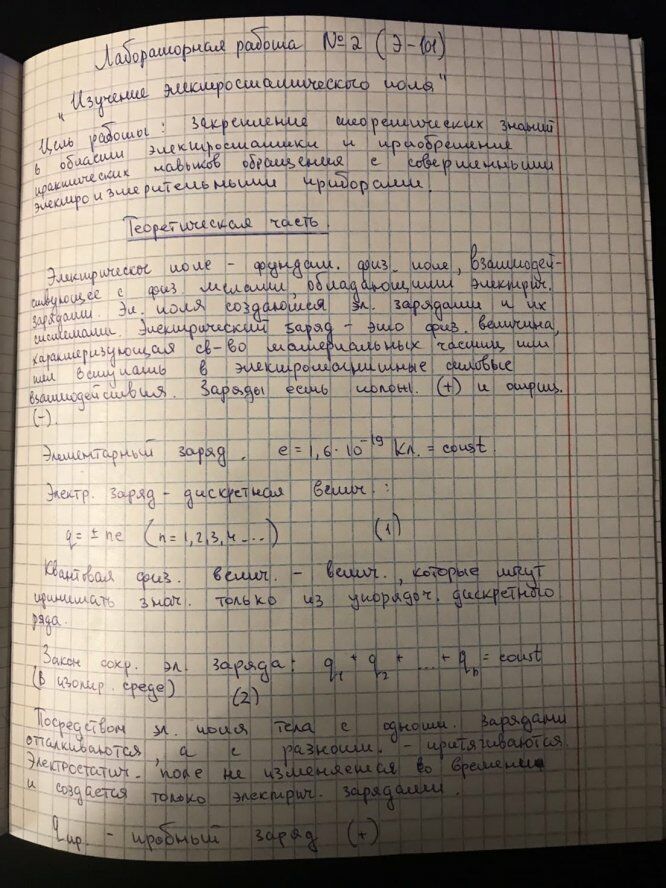 Лабораторная работа №2 (Э-101)
"Изучение электростатического поля"
Цель работы: закрепление теоретических знаний
в области электростатики и приобретение
практических навыков обращения с совершенными
электроизмерительными приборами.
Теоретическая часть.
Электрическое поле - фундам. физ. поле, взаимодей-
ствующее с физ. телами, обладающими электрич.
зарядами. Эл. поля создающееся эл. зарядами и их
системами. Электрический заряд - это физ. величина,
характеризующая св-во материальных частиц или
тел вступать в электромагнитные силовые
взаимодействия. Заряды есть полож. (+) и отриц.
(-).
Элементарный заряд. e = 1,6 · 10⁻¹⁹ Кл. = const
Электр. заряд - дискретная велич.:
q = ± ne (n = 1,2,3,4 ....) (1)
Квантовая физ. велич. - велич., которые могут
принимать знач. только из упорядоч. дискретного
ряда.
Закон сохр. эл. заряда: q₁ + q₂ + ... + qₙ = const
(в изолир. среде) (2)
Посредством эл. поля тела с одноим. зарядами
отталкиваются, а с разноим. - притягиваются.
Электростатич. поле не изменяется во времени
и создается только электрич. зарядами.
qпр. - пробный заряд (+)